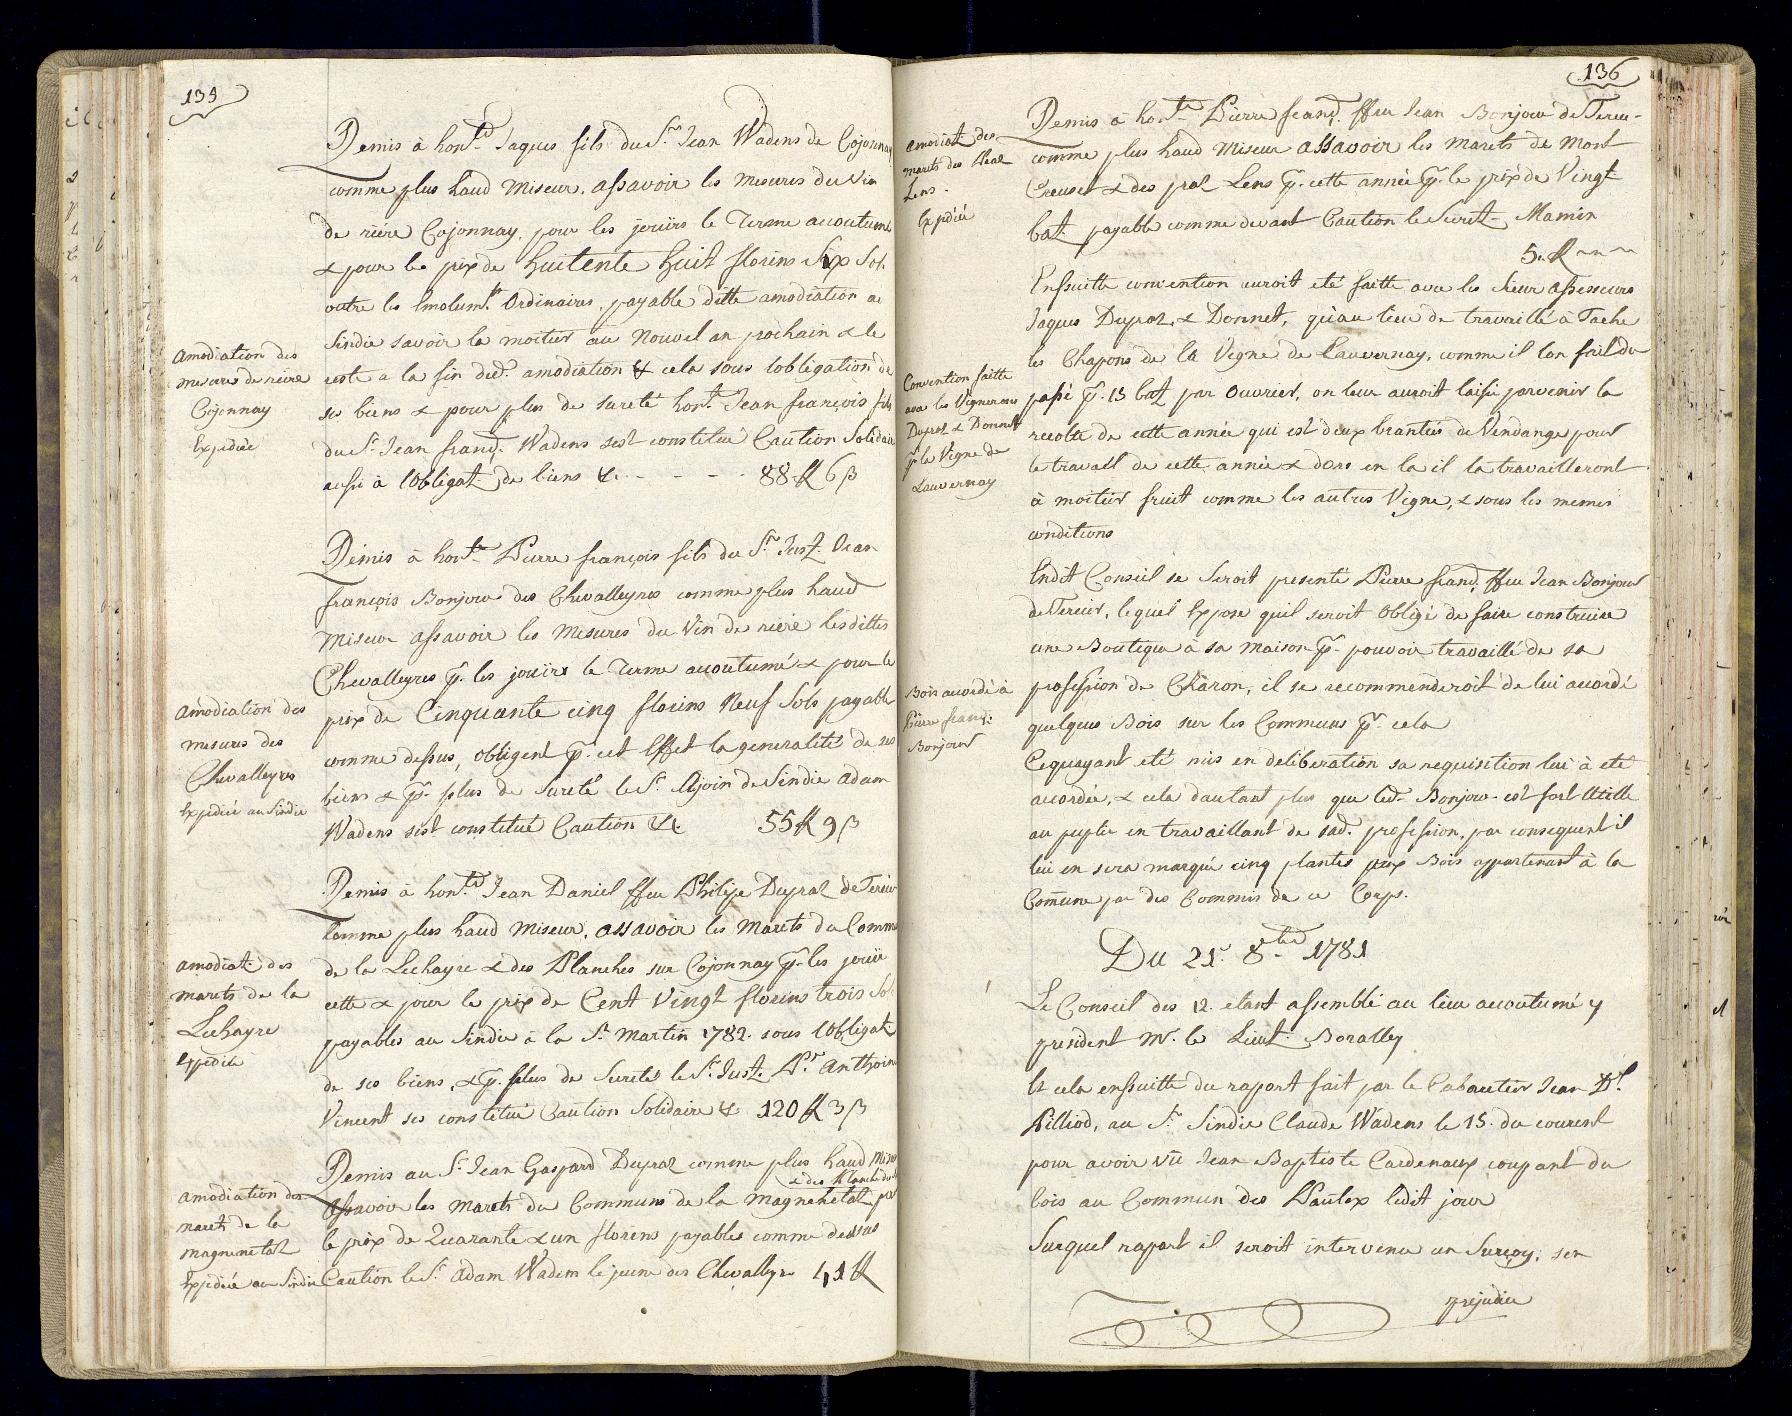 135
Remis à hon.ble Jaques fils du S.r Jean Wadens de Cojonnay
comme plus haud miseur, assavoir les mesures du vin
de riere Cojonnay, pour les jouïrs le Terme accoutumé
& pour le prix de huitente huit florins Six Sols
outre les Emolum.ts Ordinaires, payable ditte amodiation au
Sindic savoir la moitier au Nouvel an prochain & le
reste a la fin de d.e amodiation & cela sous lobligation de
ses biens & pour plus de sureté hon.ble Jean françois fils
du S.r Jean franç. Wadens sest constitué Caution Solidaire
aussi à lObligat. de biens &. - - - - 88 fl 6 ß
Amodiation des
mesures de riere
Cojonnay
Expediée
Remis à hon.ble Pierre françois fils du S.r Just. Jean
françois Bonjour des Chevalleyres comme plus haud
miseur assavoir les Mesures du Vin de riere lesdittes
Chevalleyres p.r les jouïrs le Terme accoutumé & pour le
prix de Cinquante cinq florins Neuf Sols payable
comme dessus, obligent p.r cet Effet la generalité de ses
biens & p.r plus de Sureté le S.r Ajoin de Sindic Adam
Wadens sest constitué Caution &c. 55 fl 9 ß
Amodiation des
mesures des
Chevalleyres
Expediée au Sindic
Remis à hon.ble Jean Daniel ffeu Philipe Dupraz de Tercier
Comme plus haud miseur, assavoir les Marets du Commun
de la Lechayre & des Planches sur Cojonnay p.r les jouïr
cette & pour le prix de Cent Vingt florins trois Sols
payables au Sindic à la S.t Martin 1782. sous lObligat.
de ses biens, & p.r plus de Sureté le S.r Just. P.r Anthoine
Vincent ses constitué Caution Solidaire &. 120 fl 3 ß
Amodiat. des
marets de la
Lechayre
Expediée
Remis au S.r Jean Gaspard Dupraz comme plus haud miseur
& des Planche du
assavoir les Marets du Communs de la Magnenetaz pour
le prix de Quarante & un florins payables comme dessus
Caution le S.r Adam Wadens le jeune des Chevalleyre 41 fl
Amodiation des
marets de la
magnenetaz
Expediée au Sindic
136
Remis à hon.ble Pierre franç. ffeu Jean Bonjour de Tercier
comme plus haud Miseur assavoir les Marets de Mont
Creuset & des praz Lens p.r cette année p.r le prix de Vingt
bat. payable comme devant Caution le Secret. Mamin
5. fl
Amodiat. des
marets des Praz
Lens.
Expediée
Ensuitte convention auroit eté faitte avec les Sieur assesseurs
Jaques Dupraz, & Donnet, qu'au lieu de travaillé à Tache
les Chapons de la Vigne de Lauvernay, comme il lon fait du
passé p.r 15 batz par Ouvrier, on leur auroit laissé parvenir la
recolte de cette année qui est deux brantées de Vendange pour
le travail de cette année & dors en la il la travailleront
à moitier fruit comme les autres Vigne, & sous les memes
conditions
Convention faitte
avec les Vignerons
Dupraz & Donnet
p.r la Vigne de
Lauvernay
Endit Conseil se Seroit presenté Pierre franç. ffeu Jean Bonjour
de Tercier, lequel Expose quil seroit Obligé de faire construire
une Boutique à sa maison p.r pouvoir travaillé de sa
profession de Charon, il se recommenderoit de lui accordé
quelques Bois sur les Communs p.r cela
Cequayant eté mis en deliberation sa requisition lui à eté
accordée, & cela dautant plus que led. Bonjour est fort Utille
au puplic en travaillant de sad. profession, par consequent il
lui en sera marqué cinq plantes aux Bois appartenant à la
Com̄une par des Commis de ce Corps.
Bois accordé à
Pierre franç.
Bonjour
Du 21.e 8.bre 1781
Le Conseil des 12. etant assemblé au lieu accoutumé y
president M.r le Lieut. Boralley
Et cela ensuitte du raport fait par le Cabaretier Jean D.l
Pilliod, au S.r Sindic Claude Wadens le 15. du courent
pour avoir vû Jean Baptiste Cardenaux coupant du
bois au Commun des Pautex ledit jour
Surquel raport il seroit intervenu un Surçoy, sen
prejudice